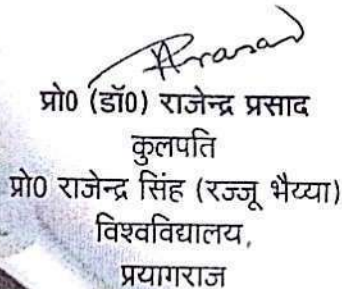 प्रो0 (डॉ0) राजेन्द्र प्रसाद
कुलपति
प्रो0 राजेन्द्र सिंह (रज्जू भैय्या)
विश्वविद्यालय,
प्रयागराज